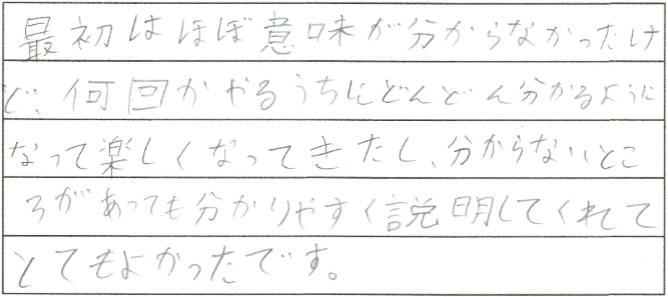 最初はほぼ意味が分からなかったけ
ど、何回かやるうちにどんどん分かるように
なって楽しくなってきたし、分からないとこ
ろがあっても分かりやすく説明してくれて
とてもよかったです。